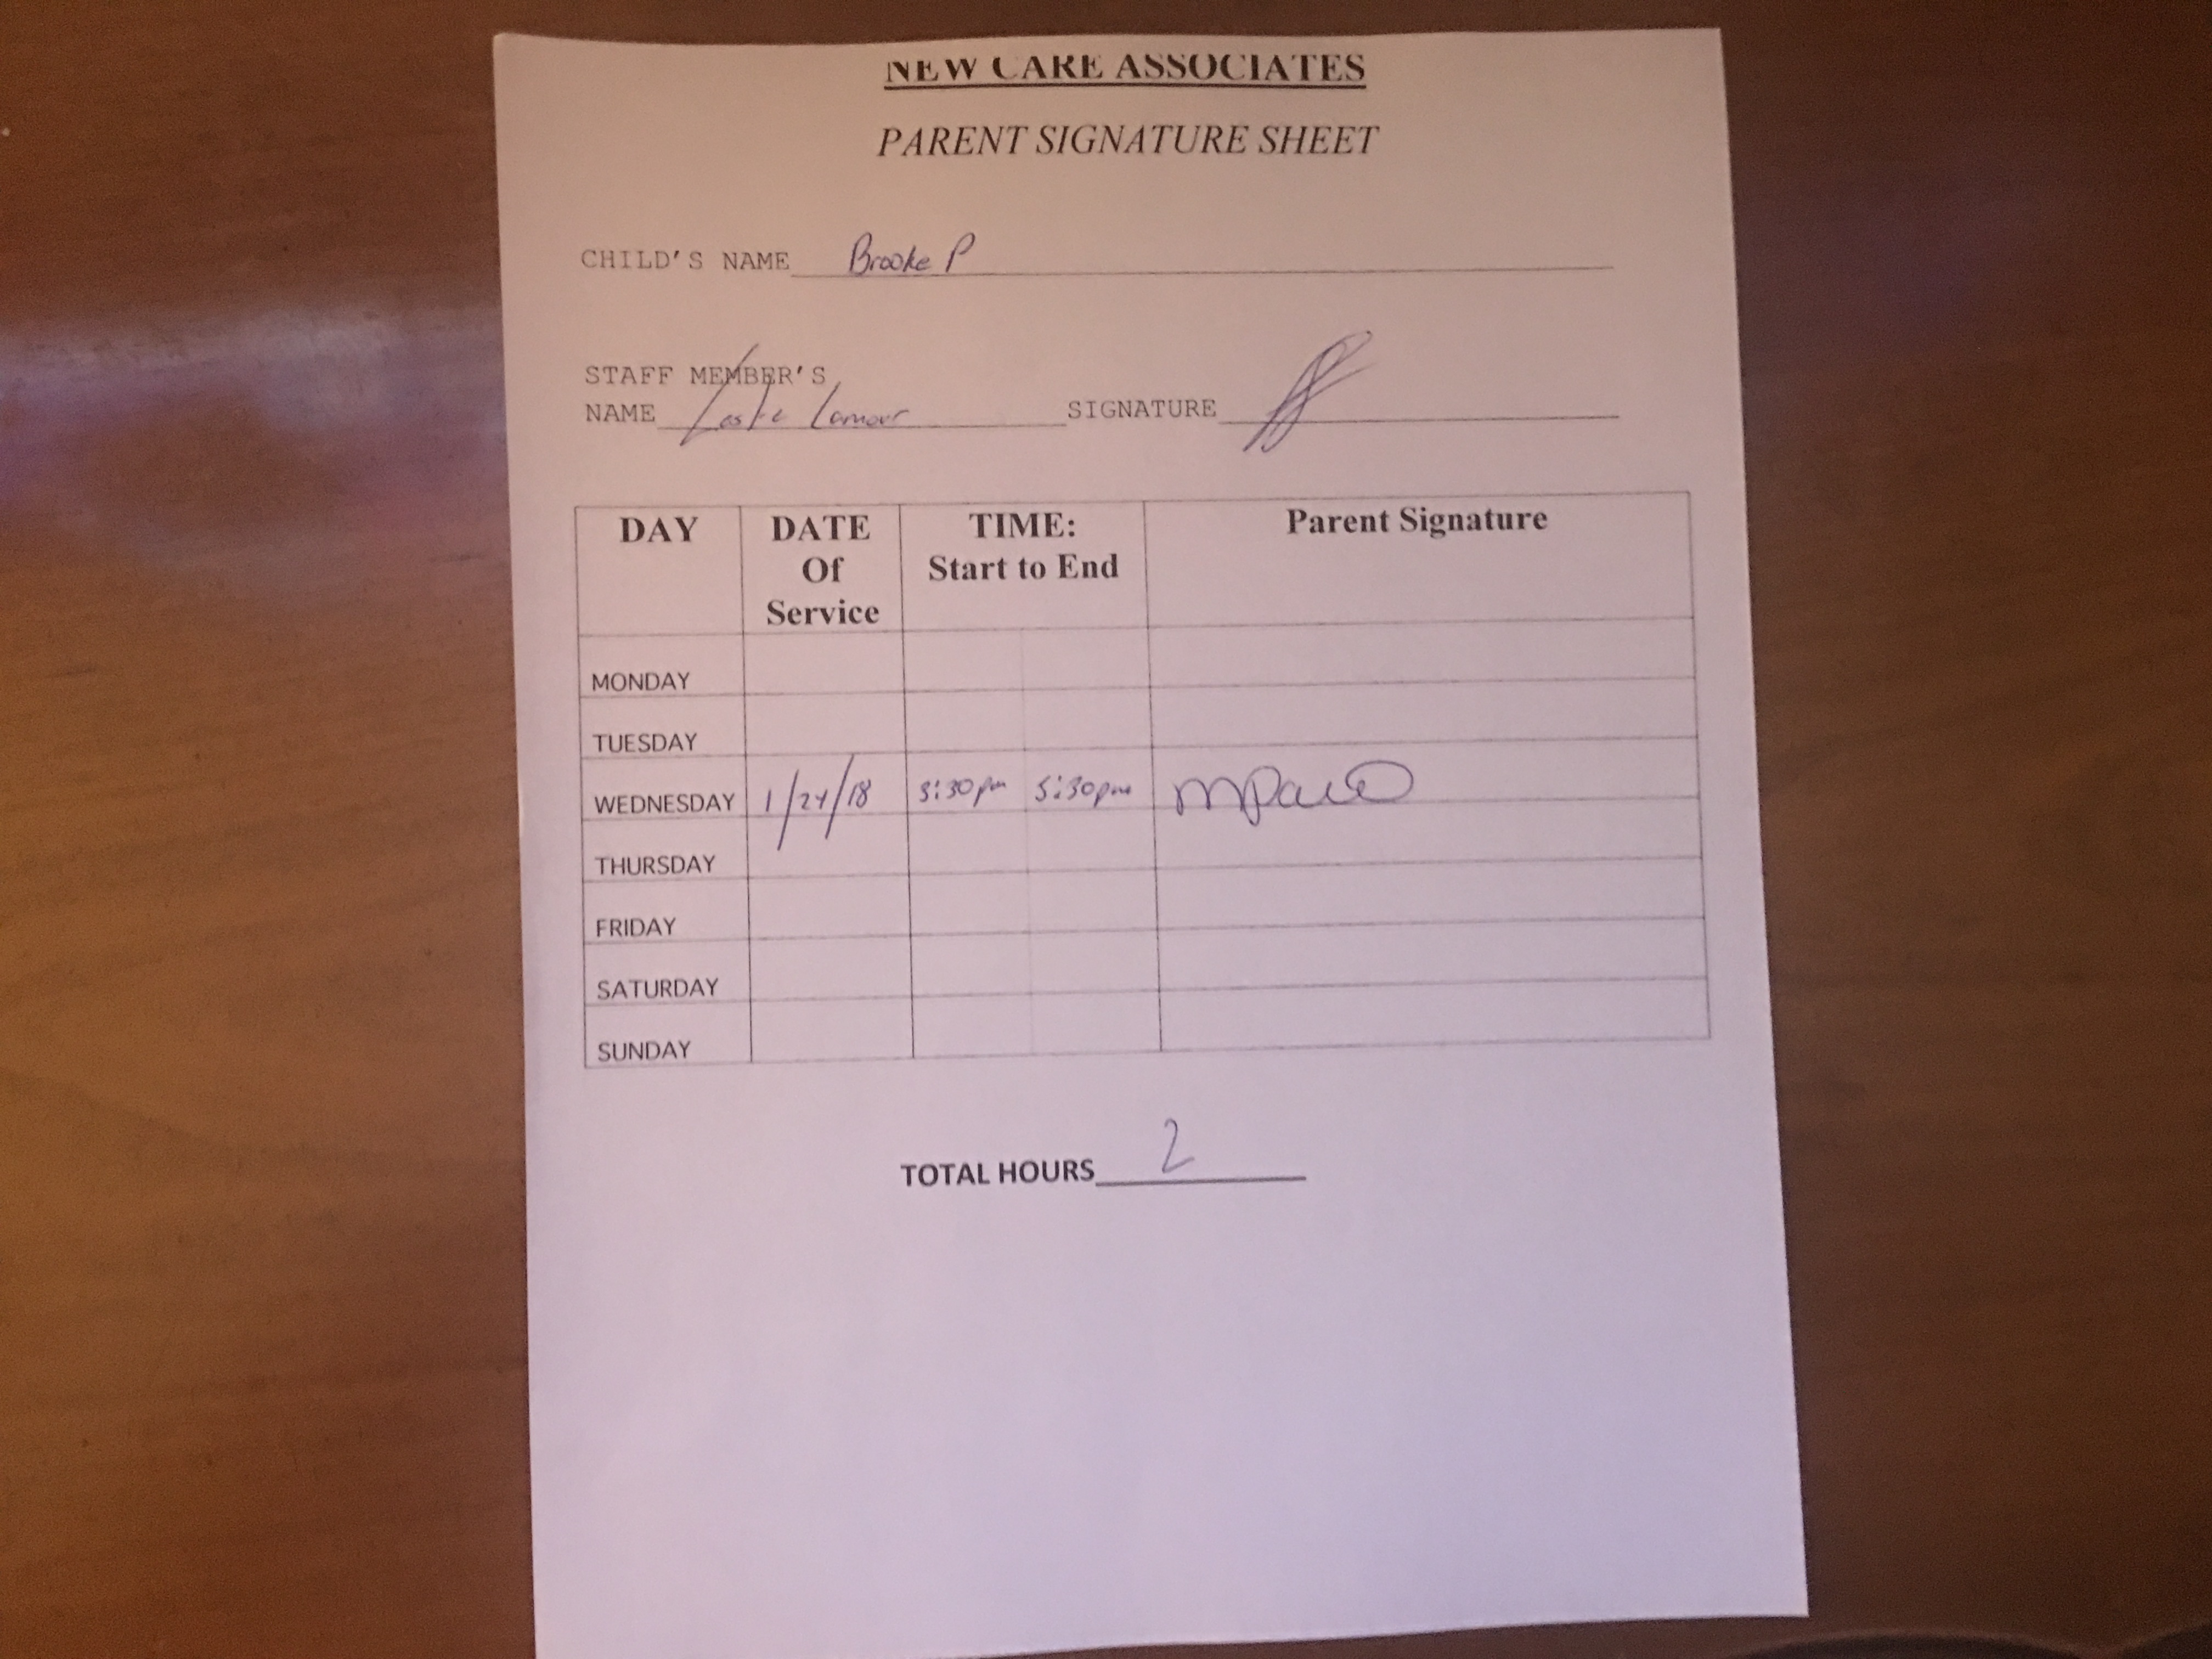 NEW CARE ASSOCIATES
PARENT SIGNATURE SHEET
CHILD'S NAME Brooke P
STAFF MEMBER'S
NAME SIGNATURE
DAY DATE Of Service TIME: Start to End Parent Signature
MONDAY
TUESDAY
WEDNESDAY 1/24/18 3:30pm 5:30pm
THURSDAY
FRIDAY
SATURDAY
SUNDAY
TOTAL HOURS 2